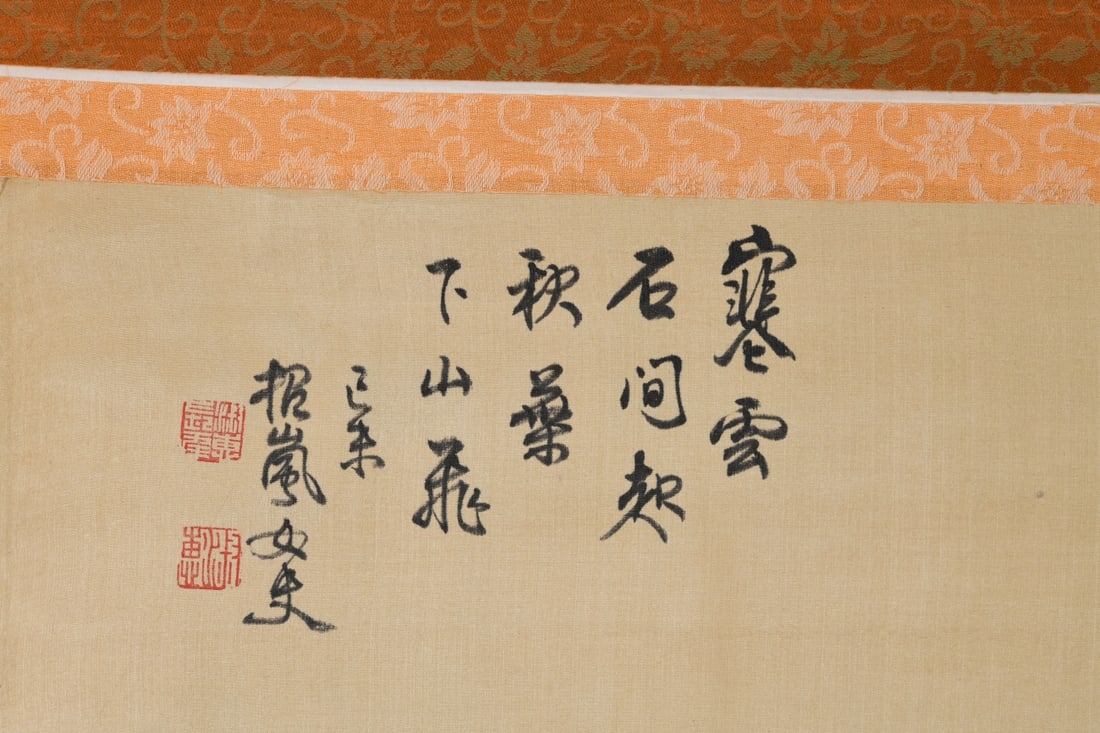 寒雲
石間起
秋葉
下山飛
己未
招嵐女史